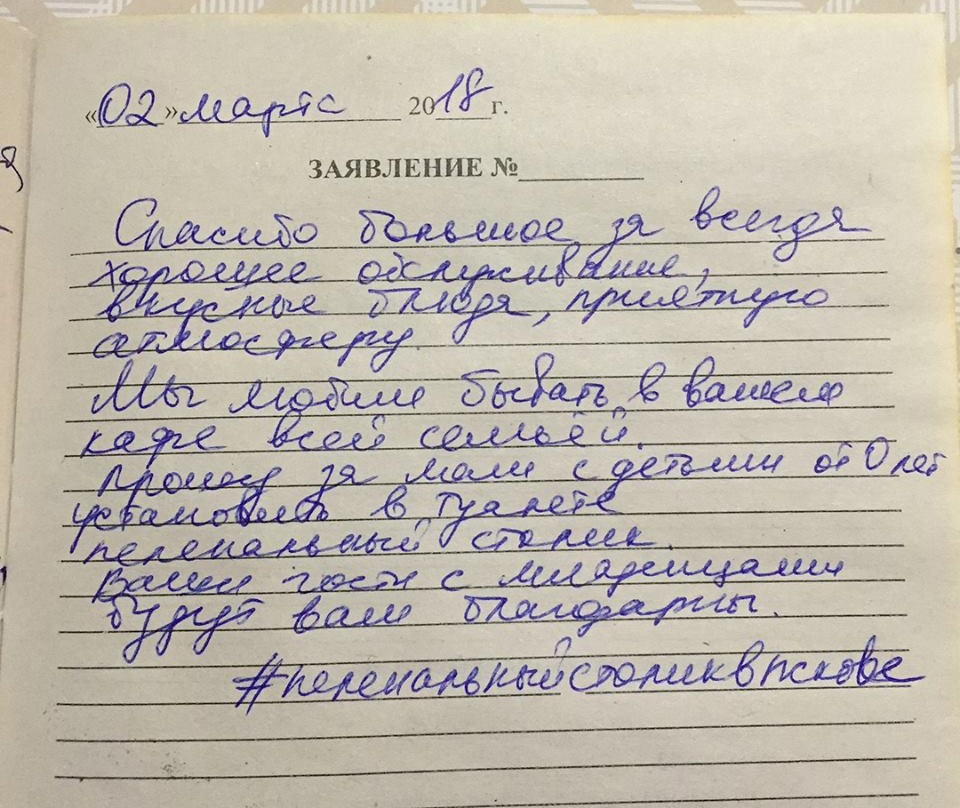 «02» марта 2018 г.
ЗАЯВЛЕНИЕ №
Спасибо большое за всегда
хорошее обслуживание,
вкусные блюда, приятную
атмосферу.
Мы любим бывать в вашем
кафе всей семьёй.
Прошу за мам с детьми от 0 лет
установить в туалете
пеленальный столик.
Ваши гости с младенцами
будут вам благодарны.
#пеленальныйстоликвпскове